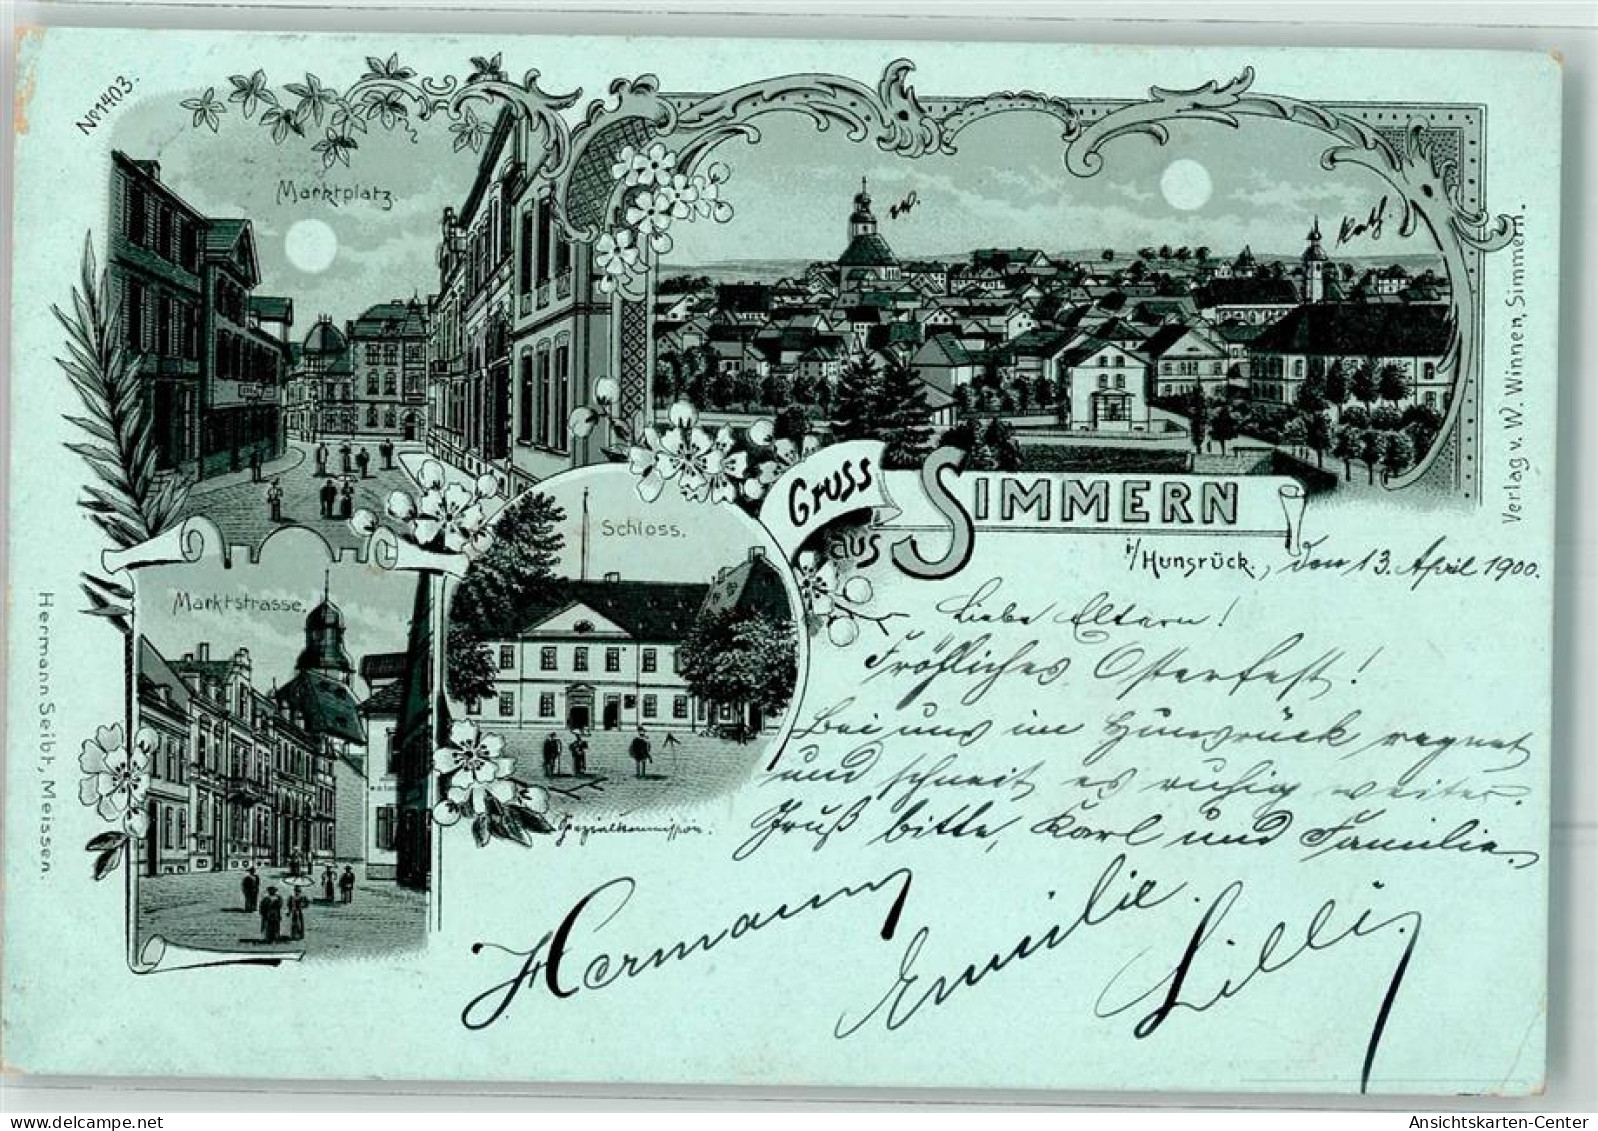 No 1403.
Marktplatz.
ev.
Kath.
Verlag v. W. Winnen, Simmern.
Gruss
aus
SIMMERN
i/Hunsrück., den 13. April 1900.
Schloss.
Marktstrasse.
Hermann Seibt, Meissen.
Spezialkommission.
Liebe Eltern!
Fröhliches Osterfest!
Bei uns im Hunsrück regnet
und schneit es ruhig weiter.
Gruß bitte, Karl und Familie.
Hermann Emilie. Lilli.
Ansichtskarten-Center